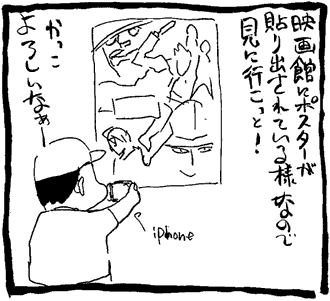 映画館にポスターが
貼り出されている様なので
見に行こっと!
かっこ
よろしいなぁー
iphone